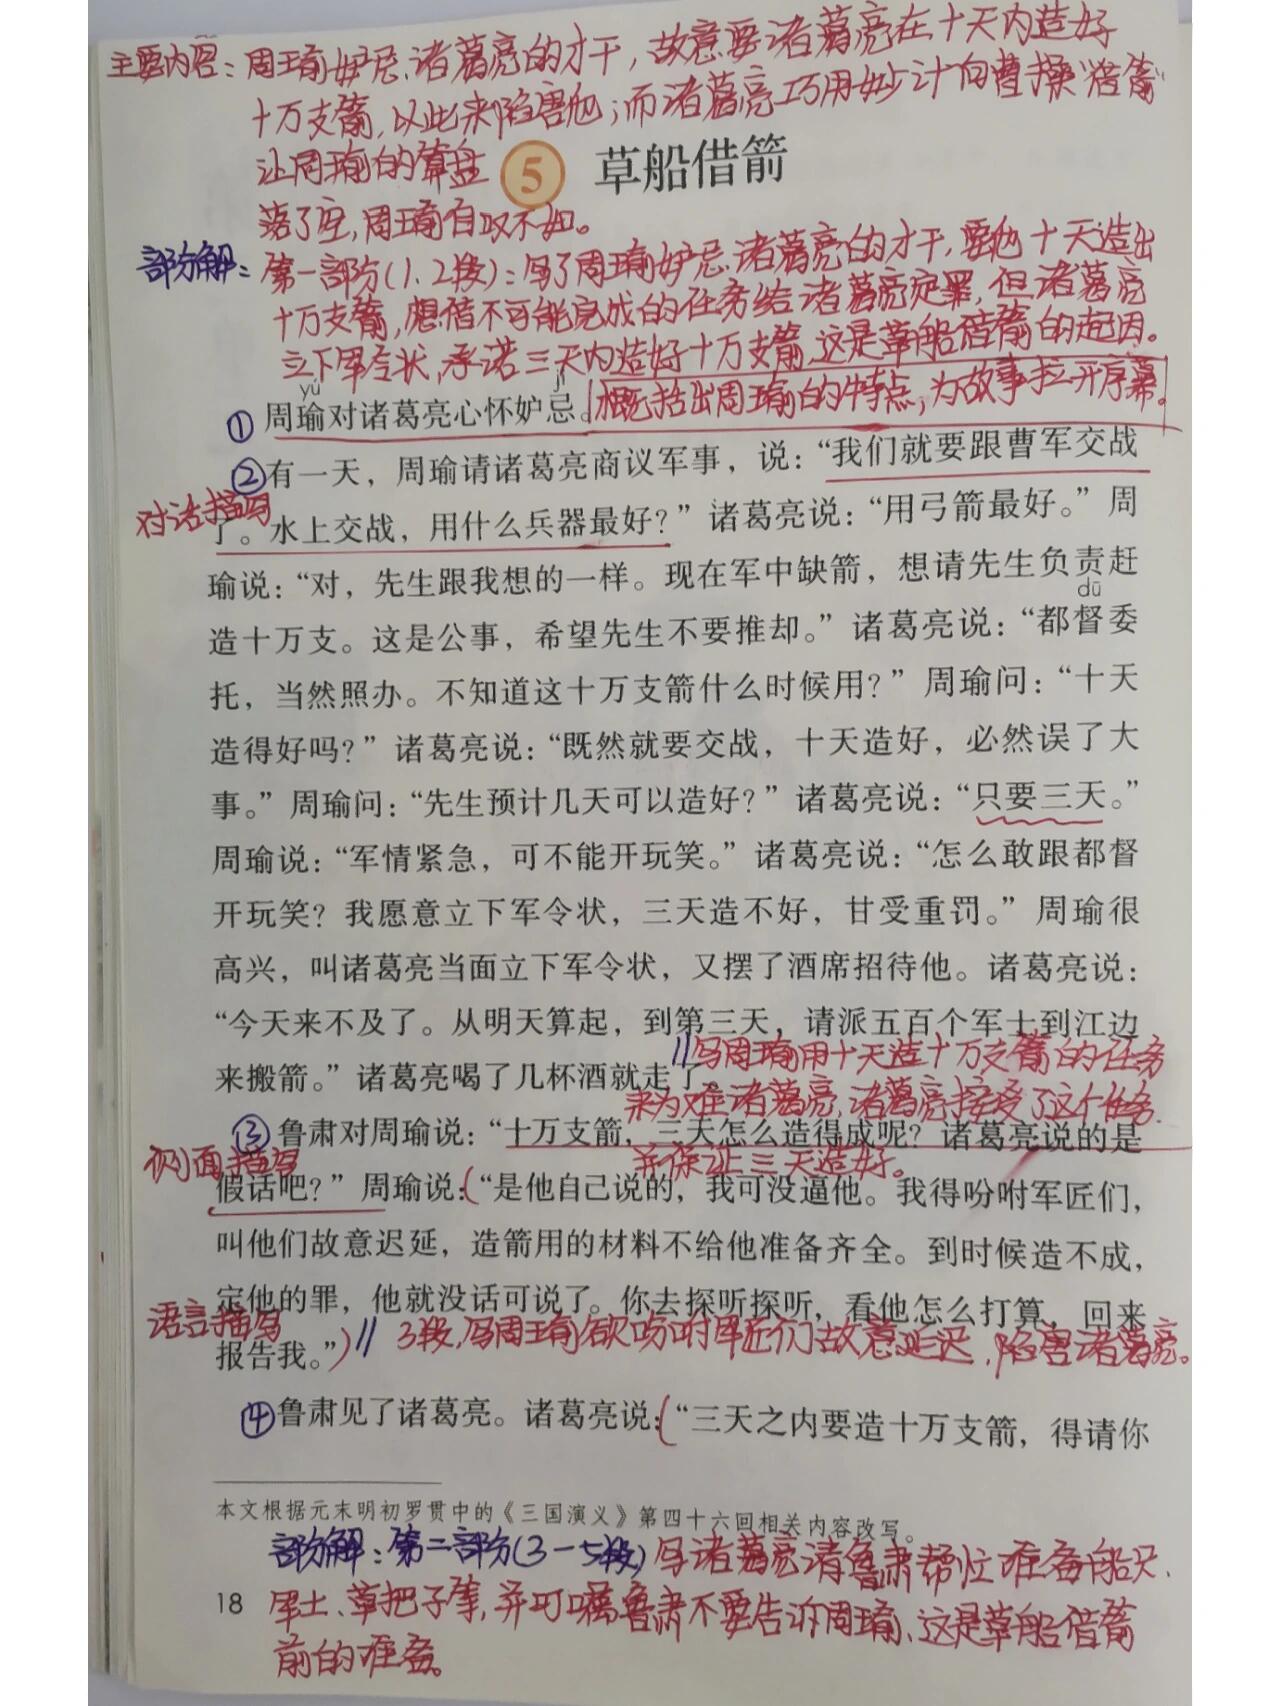 主要内容：周瑜妒忌诸葛亮的才干，故意要诸葛亮在十天内造好
十万支箭，以此来陷害他；而诸葛亮巧用妙计向曹操“借箭”
让周瑜的算盘
落了空，周瑜自叹不如。
5 草船借箭
部分解：第一部分(1.2段)：写了周瑜妒忌诸葛亮的才干，要他十天造出
十万支箭，想借不可能完成的任务给诸葛亮定罪，但诸葛亮
立下军令状，承诺三天内造好十万支箭，这是草船借箭的起因。
yú jì
①周瑜对诸葛亮心怀妒忌。概括出周瑜的特点，为故事拉开序幕。
②有一天，周瑜请诸葛亮商议军事，说：“我们就要跟曹军交战
对话描写
了。水上交战，用什么兵器最好？”诸葛亮说：“用弓箭最好。”周
瑜说：“对，先生跟我想的一样。现在军中缺箭，想请先生负责赶
dū
造十万支。这是公事，希望先生不要推却。”诸葛亮说：“都督委
托，当然照办。不知道这十万支箭什么时候用？”周瑜问：“十天
造得好吗？”诸葛亮说：“既然就要交战，十天造好，必然误了大
事。”周瑜问：“先生预计几天可以造好？”诸葛亮说：“只要三天。”
周瑜说：“军情紧急，可不能开玩笑。”诸葛亮说：“怎么敢跟都督
开玩笑？我愿意立下军令状，三天造不好，甘受重罚。”周瑜很
高兴，叫诸葛亮当面立下军令状，又摆了酒席招待他。诸葛亮说：
“今天来不及了。从明天算起，到第三天，请派五百个军士到江边
来搬箭。”诸葛亮喝了几杯酒就走了。
写周瑜用十天造十万支箭的任务
来为难诸葛亮，诸葛亮接受了这个任务.
并保证三天造好。
③鲁肃对周瑜说：“十万支箭，三天怎么造得成呢？诸葛亮说的是
侧面描写
假话吧？”周瑜说：(“是他自己说的，我可没逼他。我得吩咐军匠们，
叫他们故意迟延，造箭用的材料不给他准备齐全。到时候造不成，
定他的罪，他就没话可说了。你去探听探听，看他怎么打算，回来
语言描写
报告我。”) 3段，写周瑜欲吩咐军匠们故意延迟，陷害诸葛亮。
④鲁肃见了诸葛亮。诸葛亮说：(“三天之内要造十万支箭，得请你
本文根据元末明初罗贯中的《三国演义》第四十六回相关内容改写。
部分解：第二部分(3－5段)写诸葛亮请鲁肃帮忙准备船只、
18
军士、草把子等，并叮嘱鲁肃不要告诉周瑜、这是草船借箭
前的准备。